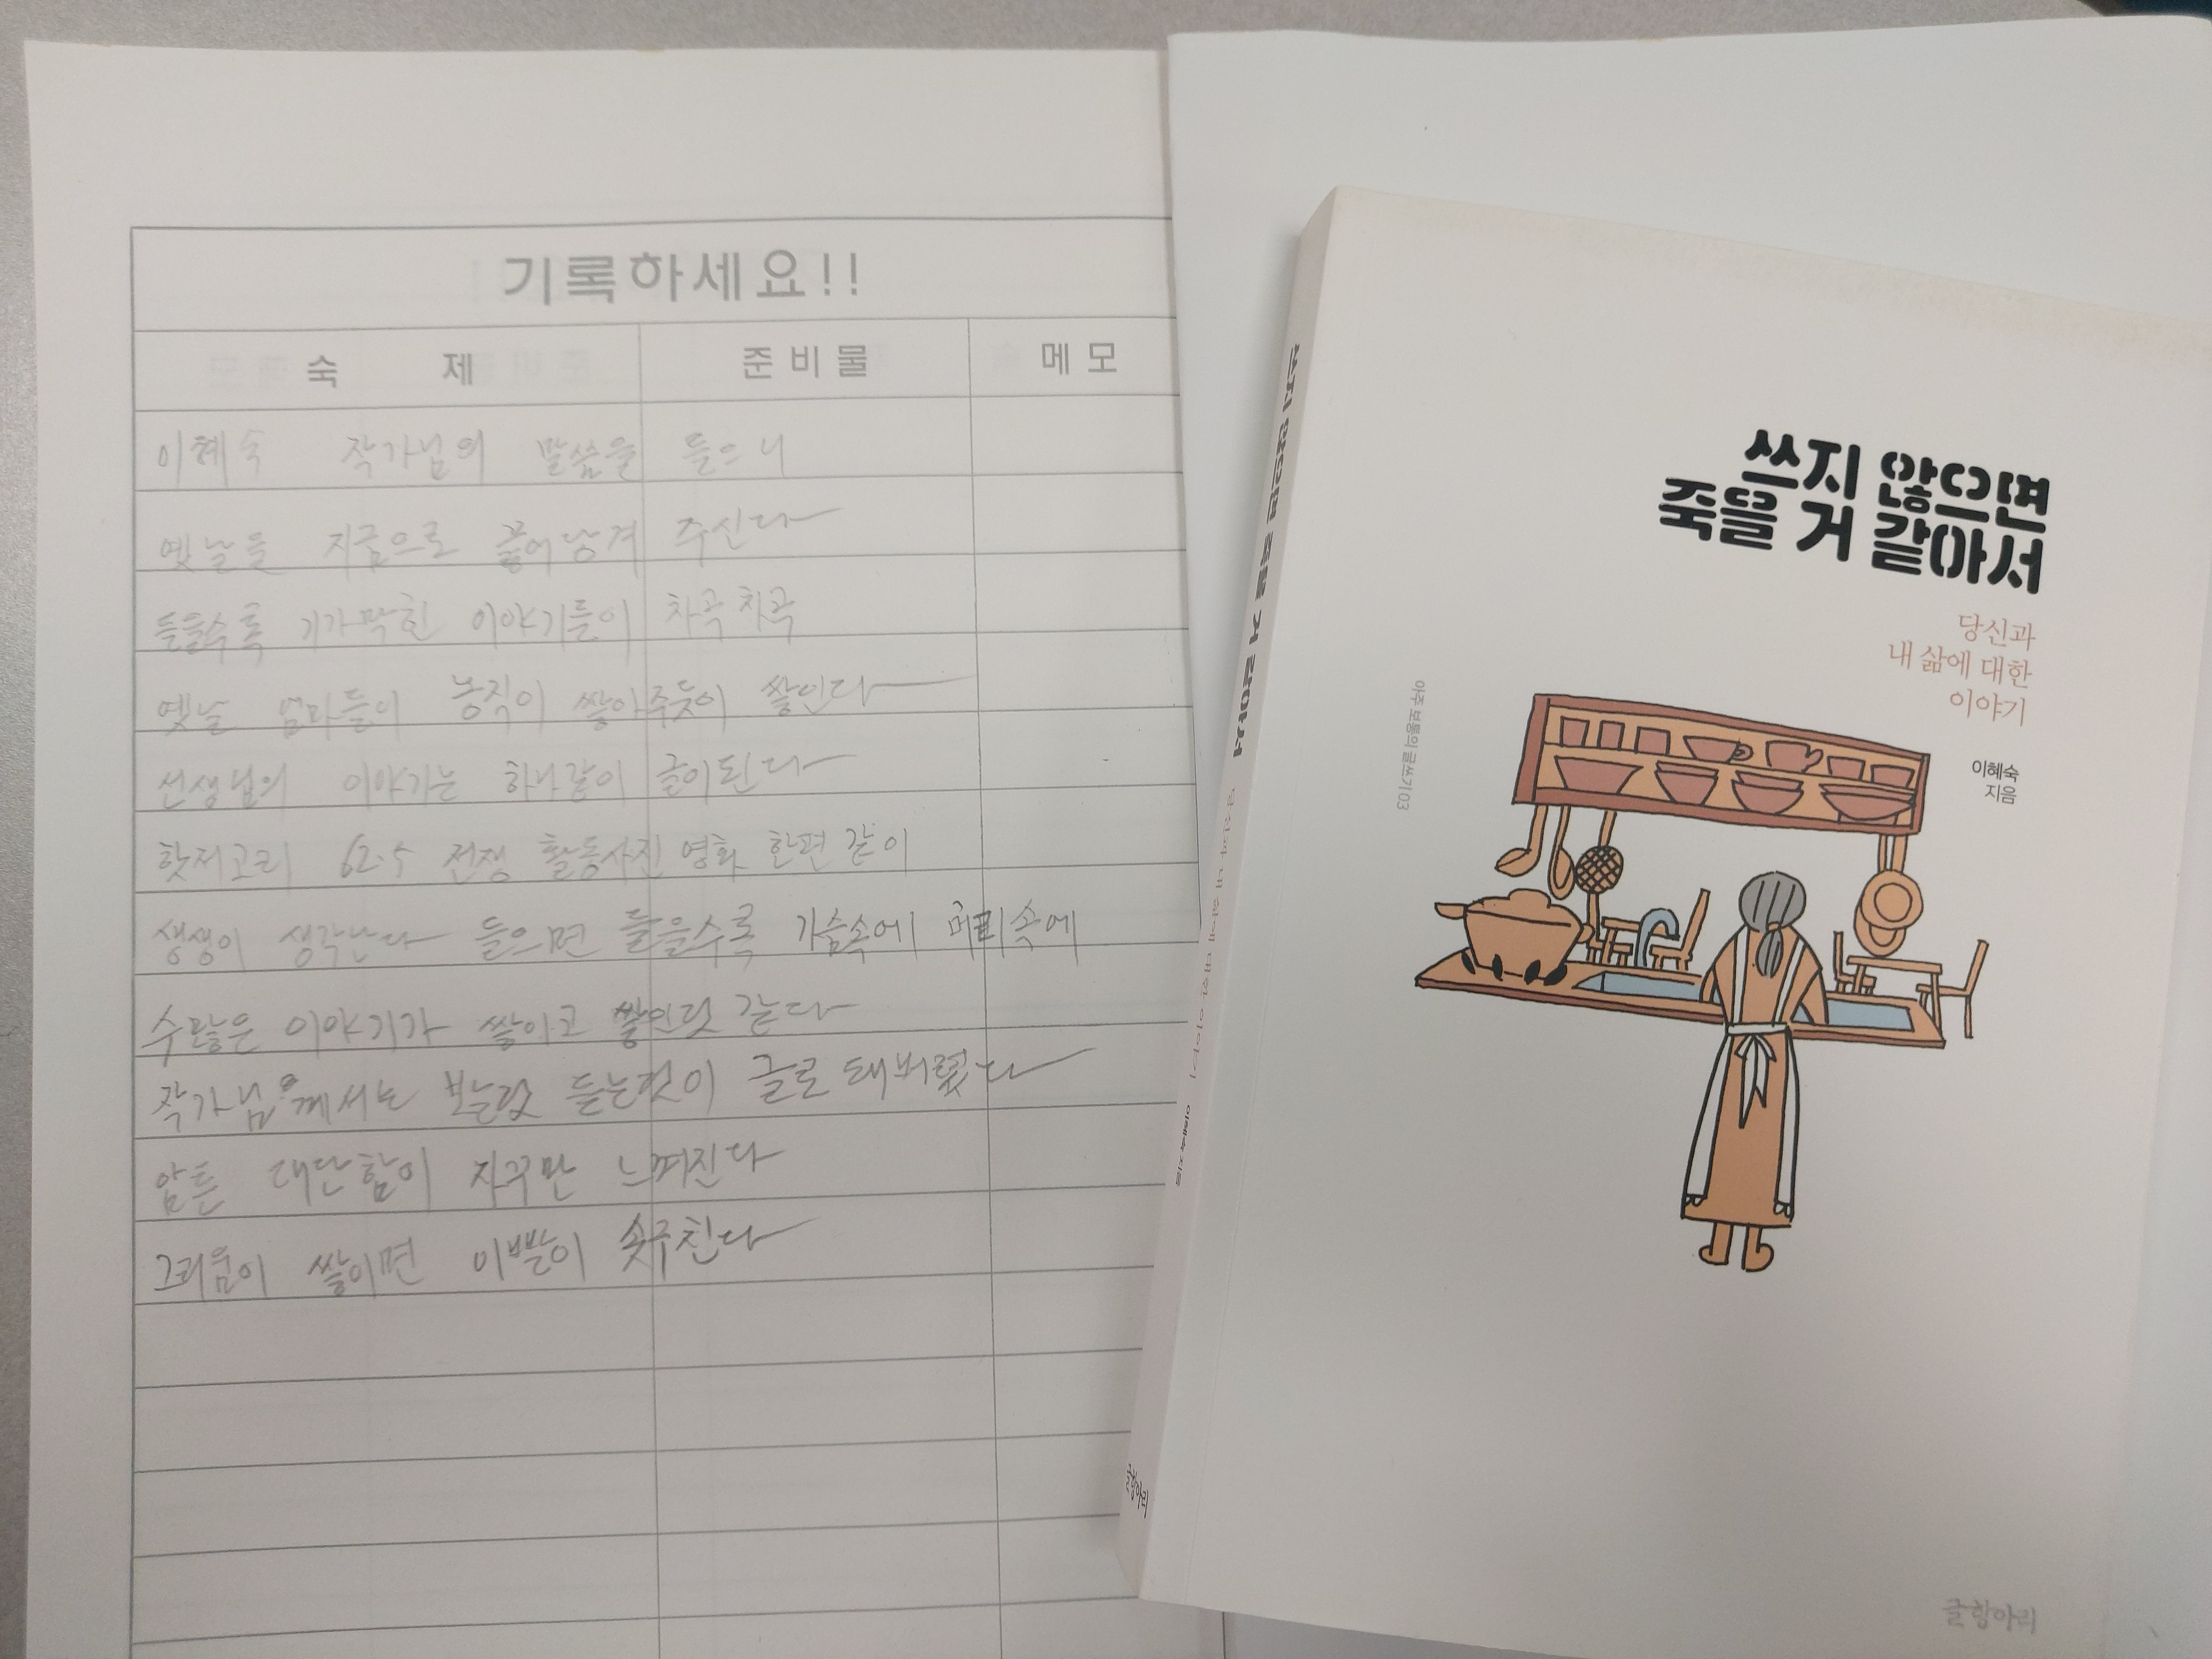 기록하세요!!
숙 제 준비물 메모
이혜숙 작가님의 말씀을 들으니
옛날을 지금으로 끌어당겨 주신다
들을수록 기가막힌 이야기들이 차곡차곡
옛날 엄마들이 농직이 쌓아주듯이 쌓인다
선생님의 이야기는 하나같이 글이된다
핫저고리 62.5 전쟁 활동사진 영화 한편 같이
생생이 생각난다 들으면 들을수록 가슴속에 머리속에
수많은 이야기가 쌓이고 쌓인것 같다
작가님께서는 보는것 듣는것이 글로 돼버렸다
암튼 대단함이 자꾸만 느껴진다
그리움이 쌓이면 이빨이 솟구친다
쓰지 않으면
죽을 거 같아서
당신과
내 삶에 대한
이야기
이혜숙
지음
아주 보통의 글쓰기 03
글항아리
쓰지 않으면 죽을 거 같아서 당신과 내 삶에 대한 이야기 이혜숙 지음
글항아리